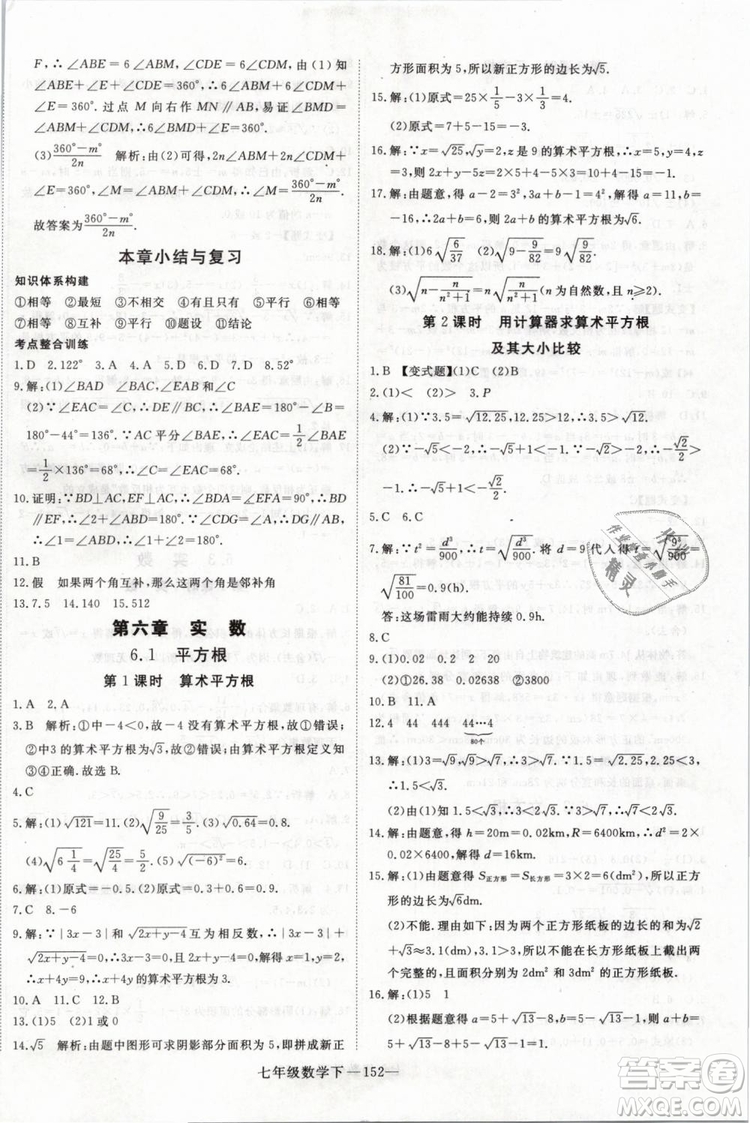 F,∴∠ABE=6∠ABM,∠CDE=6∠CDM,由(1)知
∠ABE+∠CDE+∠E=360°,∴6∠ABM+6∠CDM+
∠E=360°. 过点 M 向右作 MN∥AB,易证∠BMD=
∠ABM+∠CDM,∴6∠BMD+∠E=360°.
(3)(360°-m°)/2n 解析:由(2)可得,2n∠ABM+2n∠CDM+
∠E=360°,∠M=∠ABM+∠CDM,∴∠M=(360°-m°)/2n.
故答案为(360°-m°)/2n.
本章小结与复习
知识体系构建
①相等 ②最短 ③相交 ④有且只有 ⑤平行 ⑥相等
⑦相等 ⑧互补 ⑨平行 ⑩题设 ⑪结论
考点整合训练
1.D 2.122° 3.A 4.D 5.A 6.C 7.D 8.52°
9.解:(1)∠BAD ∠BAC ∠BAD ∠BAC
(2)∵∠EAC=∠C,∴AE∥BC,∴∠BAE+∠B=180°.
∵∠B=44°,∵AC 平分∠BAE,∴∠EAC=1/2∠BAE=
1/2×136°=68°,∴∠C=∠EAC=68°.
10.证明:∵BD⊥AC,EF⊥AC,∴∠BDA=∠EFA=90°,
∴BD∥EF,∴∠2=∠CBD. ∵∠CDG=∠A,∴DG∥AB,
∴∠1=∠CBD,∴∠1=∠2.
11.B
12.假 如果两个角互补,那么这两个角是邻补角
13.7.5 14.140 15.512
第六章 实 数
6.1 平方根
第 1 课时 算术平方根
1.A 2.A
3.B 解析:①中-4<0,故-4没有算术平方根,故①错误;
②中3的算术平方根为√3,故②错误;由算术平方根定义可
知③④正确.故选 B.
4.C
5.解:(1)√121=11. (2)√(9/25)=3/5. (3)√0.64=0.8.
(4)√(6 1/4)=√(25/4)=5/2. (5)√((-6)²)=6.
6.解:(1)原式=0.5. (2)原式=-4.
7.C 8.-6
9.解:∵|3x-3|和√(2x+y-4)互为相反数,∴|3x-3|+
√(2x+y-4)=0,∴3x-3=0,2x+y-4=0,解得x=1,y=
2,∴x+4y=9,∴x+4y的算术平方根为3.
10.A 11.C 12.B
13.(1)5 (2)1或0
14.√5 解析:由题中图形可求阴影部分面积为5,即拼成新正
方形面积为5,所以新正方形的边长为√5.
15.解:(1)原式=25×1/5-3×1/3=4.
(2)原式=7+5-15=-3.
16.解:∵x=√25,√y=4,z是9的算术平方根,∴x=5,y=
16,z=3,∴2x+y-5z=2×5+16-5×3=11.
17.解:由题意得,a-2=2²,a-b-2=4²,∴a=6,b=2×6-2-16=
-16,∴2a+b=6,∴2a+b的算术平方根是√6.
18.解:(1)√(6/37) √(9/82) (2)√(9-9/82)=9√(9/82)
(3)√(n-n/(n²+1))=n√(n/(n²+1))(n为自然数,且n≥2).
第 2 课时 用计算器求算术平方根
及其大小比较
1.B 【变式题】(1)C (2)B
2.(1)< (2)> 3.P
4.解:(1)∵3.5=√12.25,12.25>12,∴3.5>√12.
(2)∵√5>2,∴-√5<-2,∴-√5+1<-1,∴(-√5+1)/2<-1/2.
5.C 6.C
7.解:∵t²=d³/900,∴t=√(d³/900).将d=9代入得t=√(9³/900)=
√(81/100)=0.9.
答:这场雷雨大约能持续0.9h.
8.C
9.(1)0.02 0.2 2 20
(2)①26.38 0.02638 ②3800
10.B 11.A
12.4 44 444 44…4(80个)
13.解:(1)∵3=√9,√9>√7,∴3>√7.∵1.5=√2.25,√2.25<
√3,∴1.5<√3.
(2)由(1)知1.5<√3,∴3<2√3,∴√7<3<2√3,∴√7<2√3.
14.解:由题意,得h=20m=0.02km,R=6400km.∴d²=2×
0.02×6400,解得d=16km.
15.解:(1)由题意得S正方形=S长方形=4×1=4(dm²),∴正方
形的边长为√4=2(dm).
(2)不能.理由如下:因为两个正方形纸板的边长为√2
dm和√3dm,√2+√3≈3.1>3,所以不能在长方形纸板上截出两
个完整的,且面积分别为2dm²和3dm²的正方形纸板.
16.解:(1)5 1
(2)∵3<√13<4,∴2<√13-1<3,∴x=2,y=√13-1-2=
√13-3.
七年级数学下—152—
作业精灵
答案圈
MXQE.COM